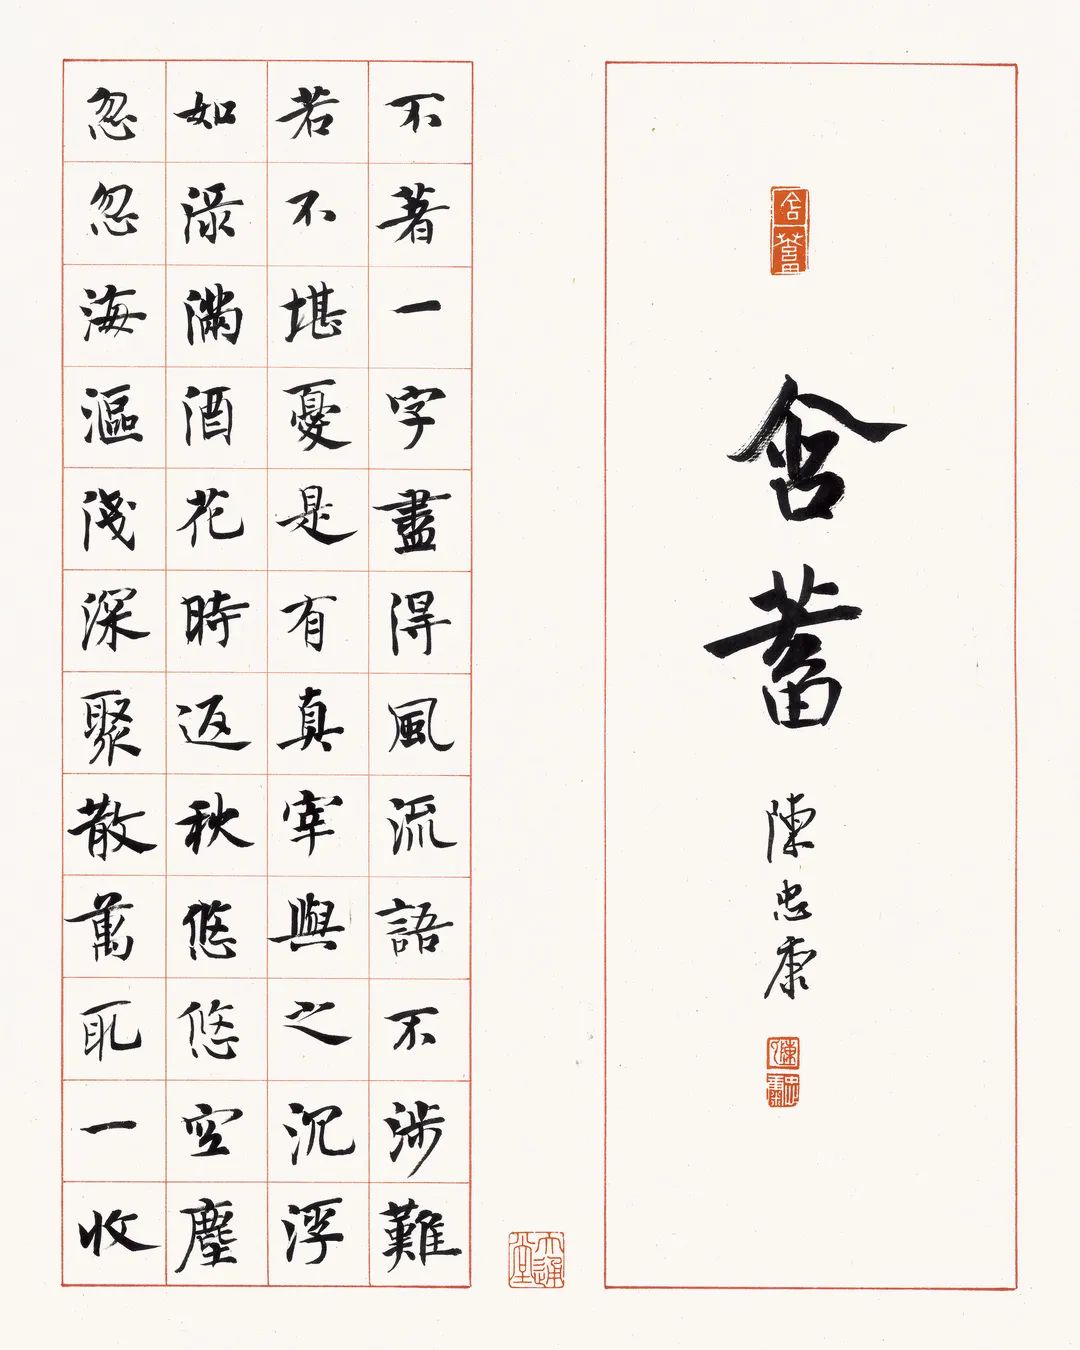 含蓄
含蓄
陳忠康
陳忠康
不著一字盡得風流語不涉難
若不堪憂是有真宰與之沉浮
如淥滿酒花時返秋悠悠空塵
忽忽海漚淺深聚散萬取一收